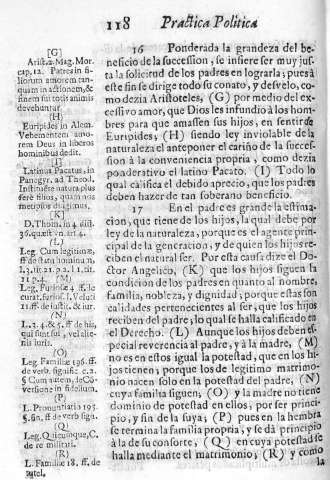 118 Practica Politica
[G]
Arist. 2. Mag. Mor.
cap. 12. Patres in fi-
liorum amorem tan-
quam in actionem, &
finem sui totis animis
devehuntur
(H)
Euripides in Alem.
Vehementem amo-
rem Deus in liberos
hominibus dedit.
[I]
Latinus Pacatus, in
Panegyr. ad Theod.
Instituēte natura plus
ferè filios, quam nos
metipsos diligimus.
[K]
D. Thom. in 4. dist.
36. quæst. vn. art. 4.
(L)
Leg. Cum legitimæ,
ff. de stat. hominum,
(M)
Leg. Furiosæ 4. ff. de
curat. furios. l. Veluti
2. ff. de iustit. & iur.
(N)
L. 3. 4. & 5. ff. de his,
qui sunt sui, vel alie-
nis iuris.
(O)
Leg. Familiæ 195. ff.
de verb. signific. c. 2.
§. Cum autem, de Cō-
versione infidelium.
(P)
L. Pronuntiatio 195.
§. fin. ff. de verb. sign.
(Q)
Leg. Quicumque, C.
de re militari.
(R)
L. Familiæ 18. ff. de
16 Ponderada la grandeza del be-
neficio de la succession, se infiere ser muy jus-
ta la solicitud de los padres en lograrla; pues à
este fin se dirige todo su conato, y desvelo, co-
mo dezia Aristoteles, (G) por medio del ex-
cessivo amor, que Dios les infundiò à los hom-
bres para que amassen sus hijos, en sentir de
Euripides; (H) siendo ley inviolable de la
naturaleza el anteponer el cariño de la succes-
sion à la conveniencia propria, como dezia
ponderativo el latino Pacato. (I) Todo lo
qual califica el debido aprecio, que los padres
deben hazer de tan soberano beneficio.
17 En el padre es grande la estima-
cion, que tiene de los hijos, la qual debe por
ley de la naturaleza, porque es el agente prin-
cipal de la generacion, y de quien los hijos re-
ciben el natural ser. Por esta causa dize el Do-
ctor Angelico, (K) que los hijos siguen la
condicion de los padres en quanto al nombre,
familia, nobleza, y dignidad; porque estas son
calidades pertenecientes al ser, que los hijos
reciben del padre, lo qual se halla calificado en
el Derecho. (L) Aunque los hijos deben es-
pecial reverencia al padre, y à la madre, (M)
no es en estos igual la potestad, que en los hi-
jos tienen; porque los de legitimo matrimo-
nio nacen solo en la potestad del padre, (N)
cuya familia siguen, (O) y la madre no tiene
dominio de potestad en ellos, por ser princi-
pio, y fin de la suya; (P) pues en la hembra
se termina la familia propria, y se dà principio
à la de su consorte, (Q) en cuya potestad se
halla mediante el matrimonio; (R) y como